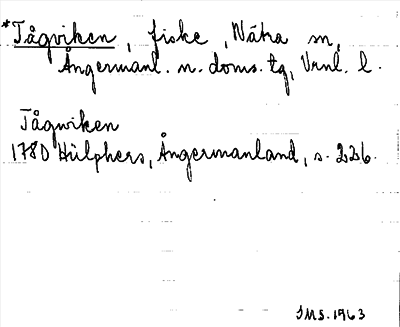 *Tågviken, fiske, Nätra sn,
Ångermanl. n. doms. tg, Vrnl. l.
Tågwiken
1780 Hülphers, Ångermanland, s. 226.
SMS. 1963